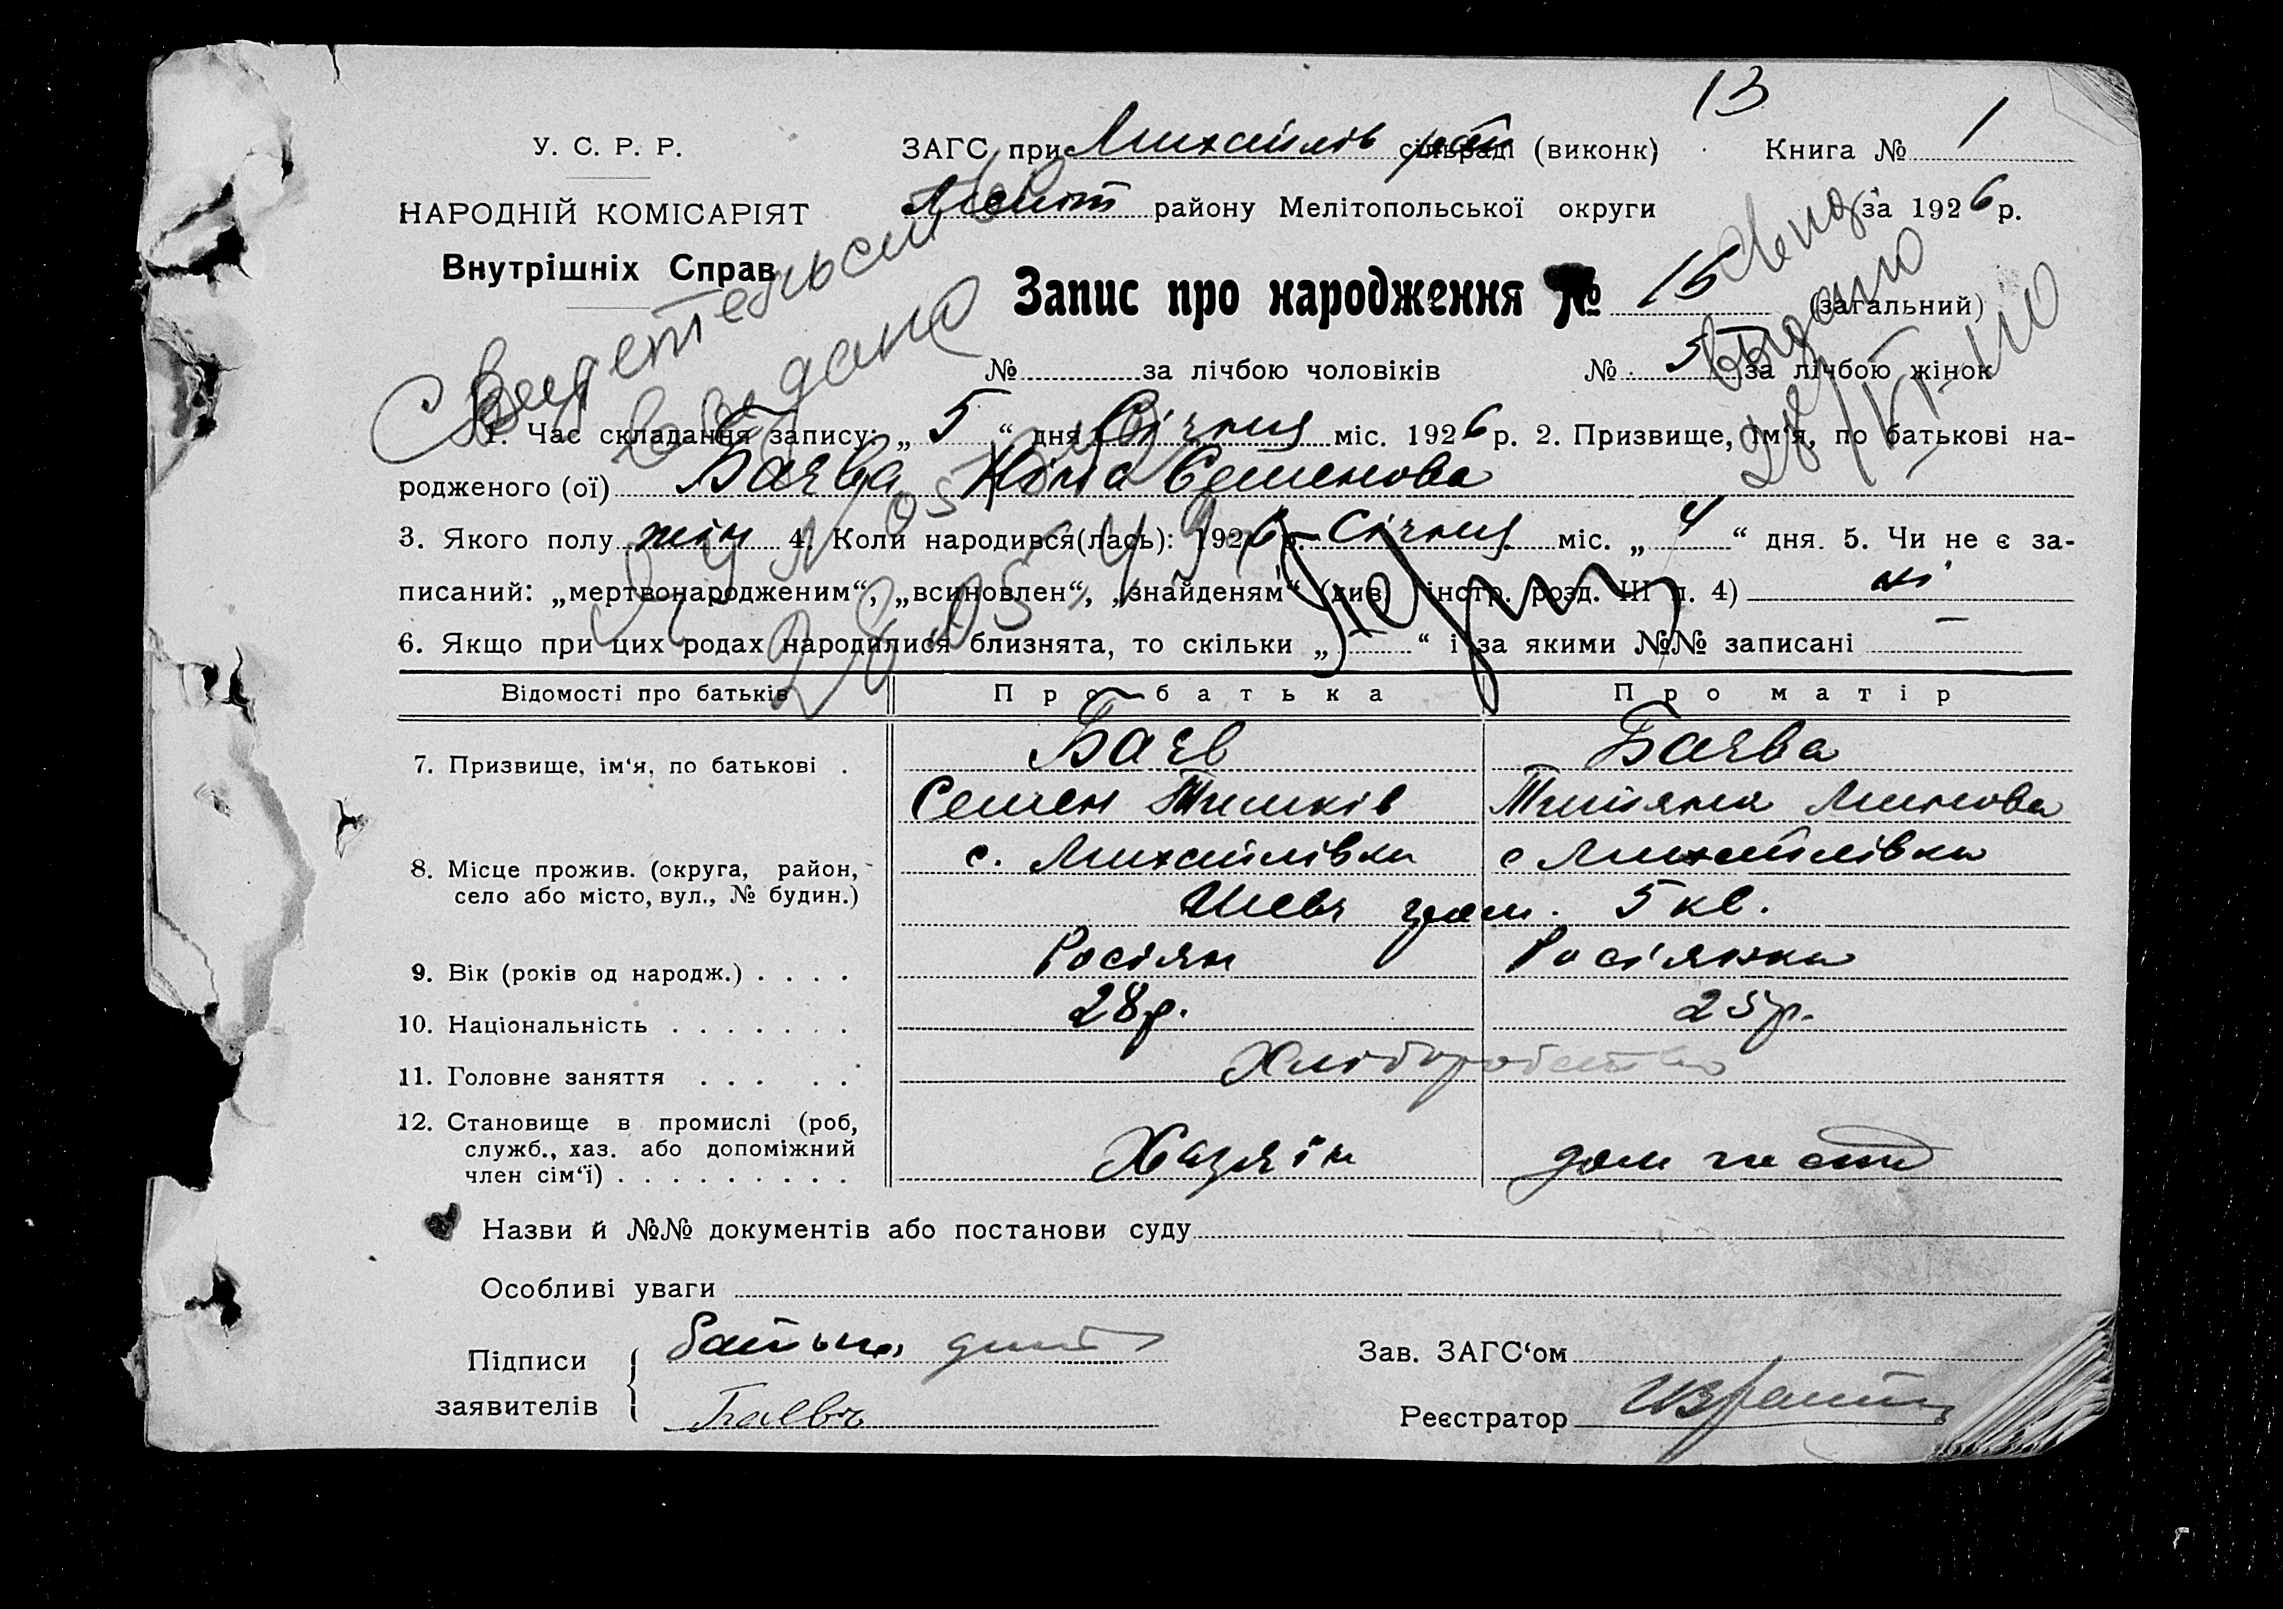 13
У. С. Р. Р.
ЗАГС при Михайлів сільраді (виконк) Книга № 1
НАРОДНІЙ КОМІСАРІЯТ
Меліт району Мелітопольської округи за 1926 р.
Внутрішніх Справ
Запис про народження № 15 (загальний)
Свидетельство
выдано
выдано
№ за лічбою чоловіків № 5 за лічбою жінок
1. Час складання запису: „ 5 “ дня Січня міс. 1926 р. 2. Призвище, ім‘я, по батькові на-
родженого (ої) Баєва Ніна Семенова
3. Якого полу жін 4. Коли народився(лась): 1926 р. Січня міс. „ 4 “ дня. 5. Чи не є за-
писаний: „мертвонародженим“, „всиновлен“, „знайденям“ (див. інстр. розд. III п. 4) ні
6. Якщо при цих родах народилися близнята, то скільки „ — “ і за якими №№ записані —
Відомості про батьків Про батька Про матір
7. Призвище, ім‘я, по батькові . Баєв Баєва
Семен Тимків Титяна Минова
8. Місце прожив. (округа, район, с. Михайлівка с Михайлівка
село або місто, вул., № будин.) Шевч гром. 5 кв.
9. Вік (років од народж.) . . . . Росіян Росіянка
10. Національність . . . . . . . 28 р. 25 р.
11. Головне заняття . . . . . Хліборобство
12. Становище в промислі (роб,
служб., хаз. або допоміжний
член сім‘ї) . . . . . . . . . Хазяїн дом госп
Назви й №№ документів або постанови суду
Особливі уваги
Підписи заявителів { батько дит
Баевъ
Зав. ЗАГС‘ом
Реєстратор